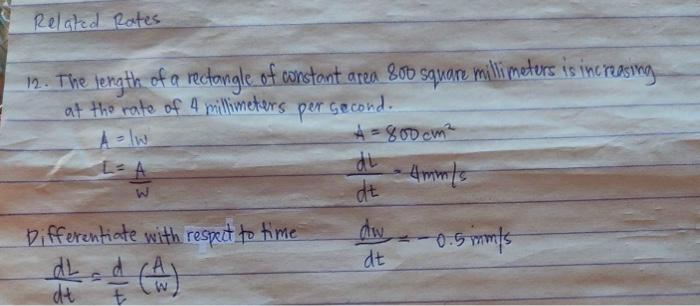 Related Rates
12. The length of a rectangle of constant area 800 square millimeters is increasing
at the rate of 4 millimeters per second.
A = lw
A = 800 cm²
L = A/W
dL/dt = 4mm/s
Differentiate with respect to time
dw/dt = -0.5 mm/s
dL/dt = d/t (A/W)